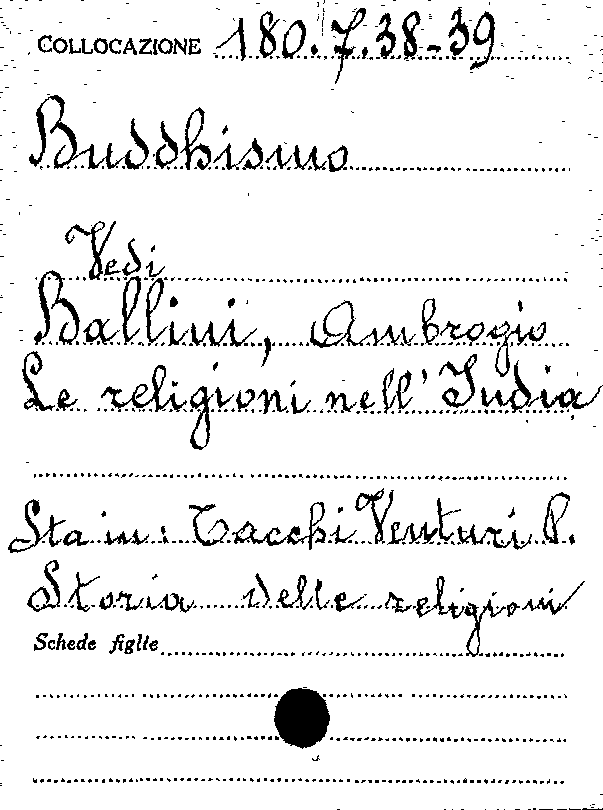 COLLOCAZIONE 180.7.38-39
Buddhismo
Vedi
Ballini, Ambrogio
Le religioni nell'India
Sta in: Tacchi Venturi P.
Storia delle religioni
Schede figlie